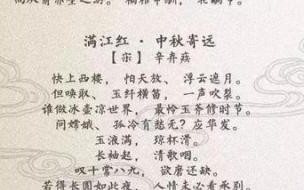 满江红·中秋寄远
【宋】辛弃疾
快上西楼，怕天放、浮云遮月。
但唤取、玉纤横笛，一声吹裂。
谁做冰壶凉世界，最怜玉斧修时节。
问嫦娥、孤冷有愁无？应华发。
玉液满，琼杯滑。
长袖起，清歌咽。
叹十常八九，欲磨还缺。
若得长圆如此夜，人情未必看承别。